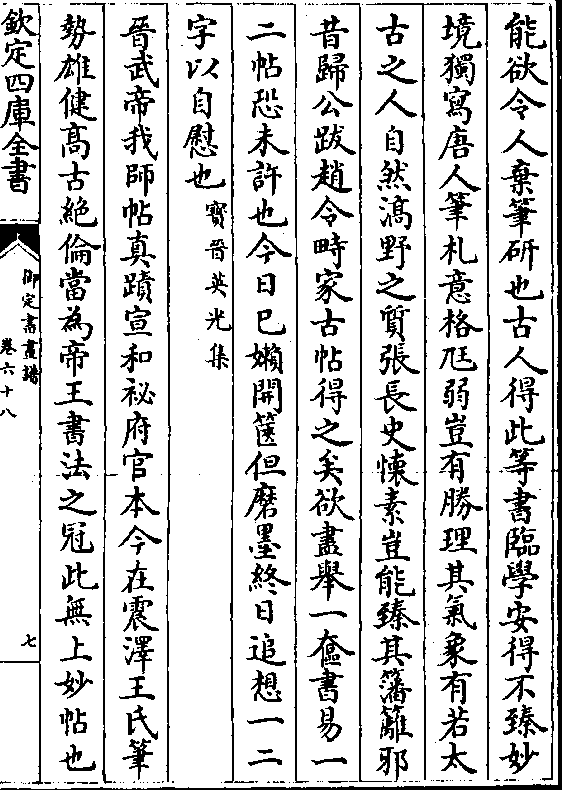 能欲令人棄筆研也古人得此等書臨學安得不臻妙
境獨寫唐人筆札意格尫弱豈有勝理其氣象有若太
古之人自然淳野之質張長史懷素豈能臻其藩籬邪
昔歸公跋趙令時家古帖得之矣欲盡舉一奩書易一
二帖恐未許也今日已嬾開篋但磨墨終日追想一二
字以自慰也寶晉英光集
晉武帝我師帖真蹟宣和祕府官本今在震澤王氏筆
勢雄健高古絶倫當為帝王書法之冠此無上妙帖也
欽定四庫全書
御定書畫譜
卷六十八
七